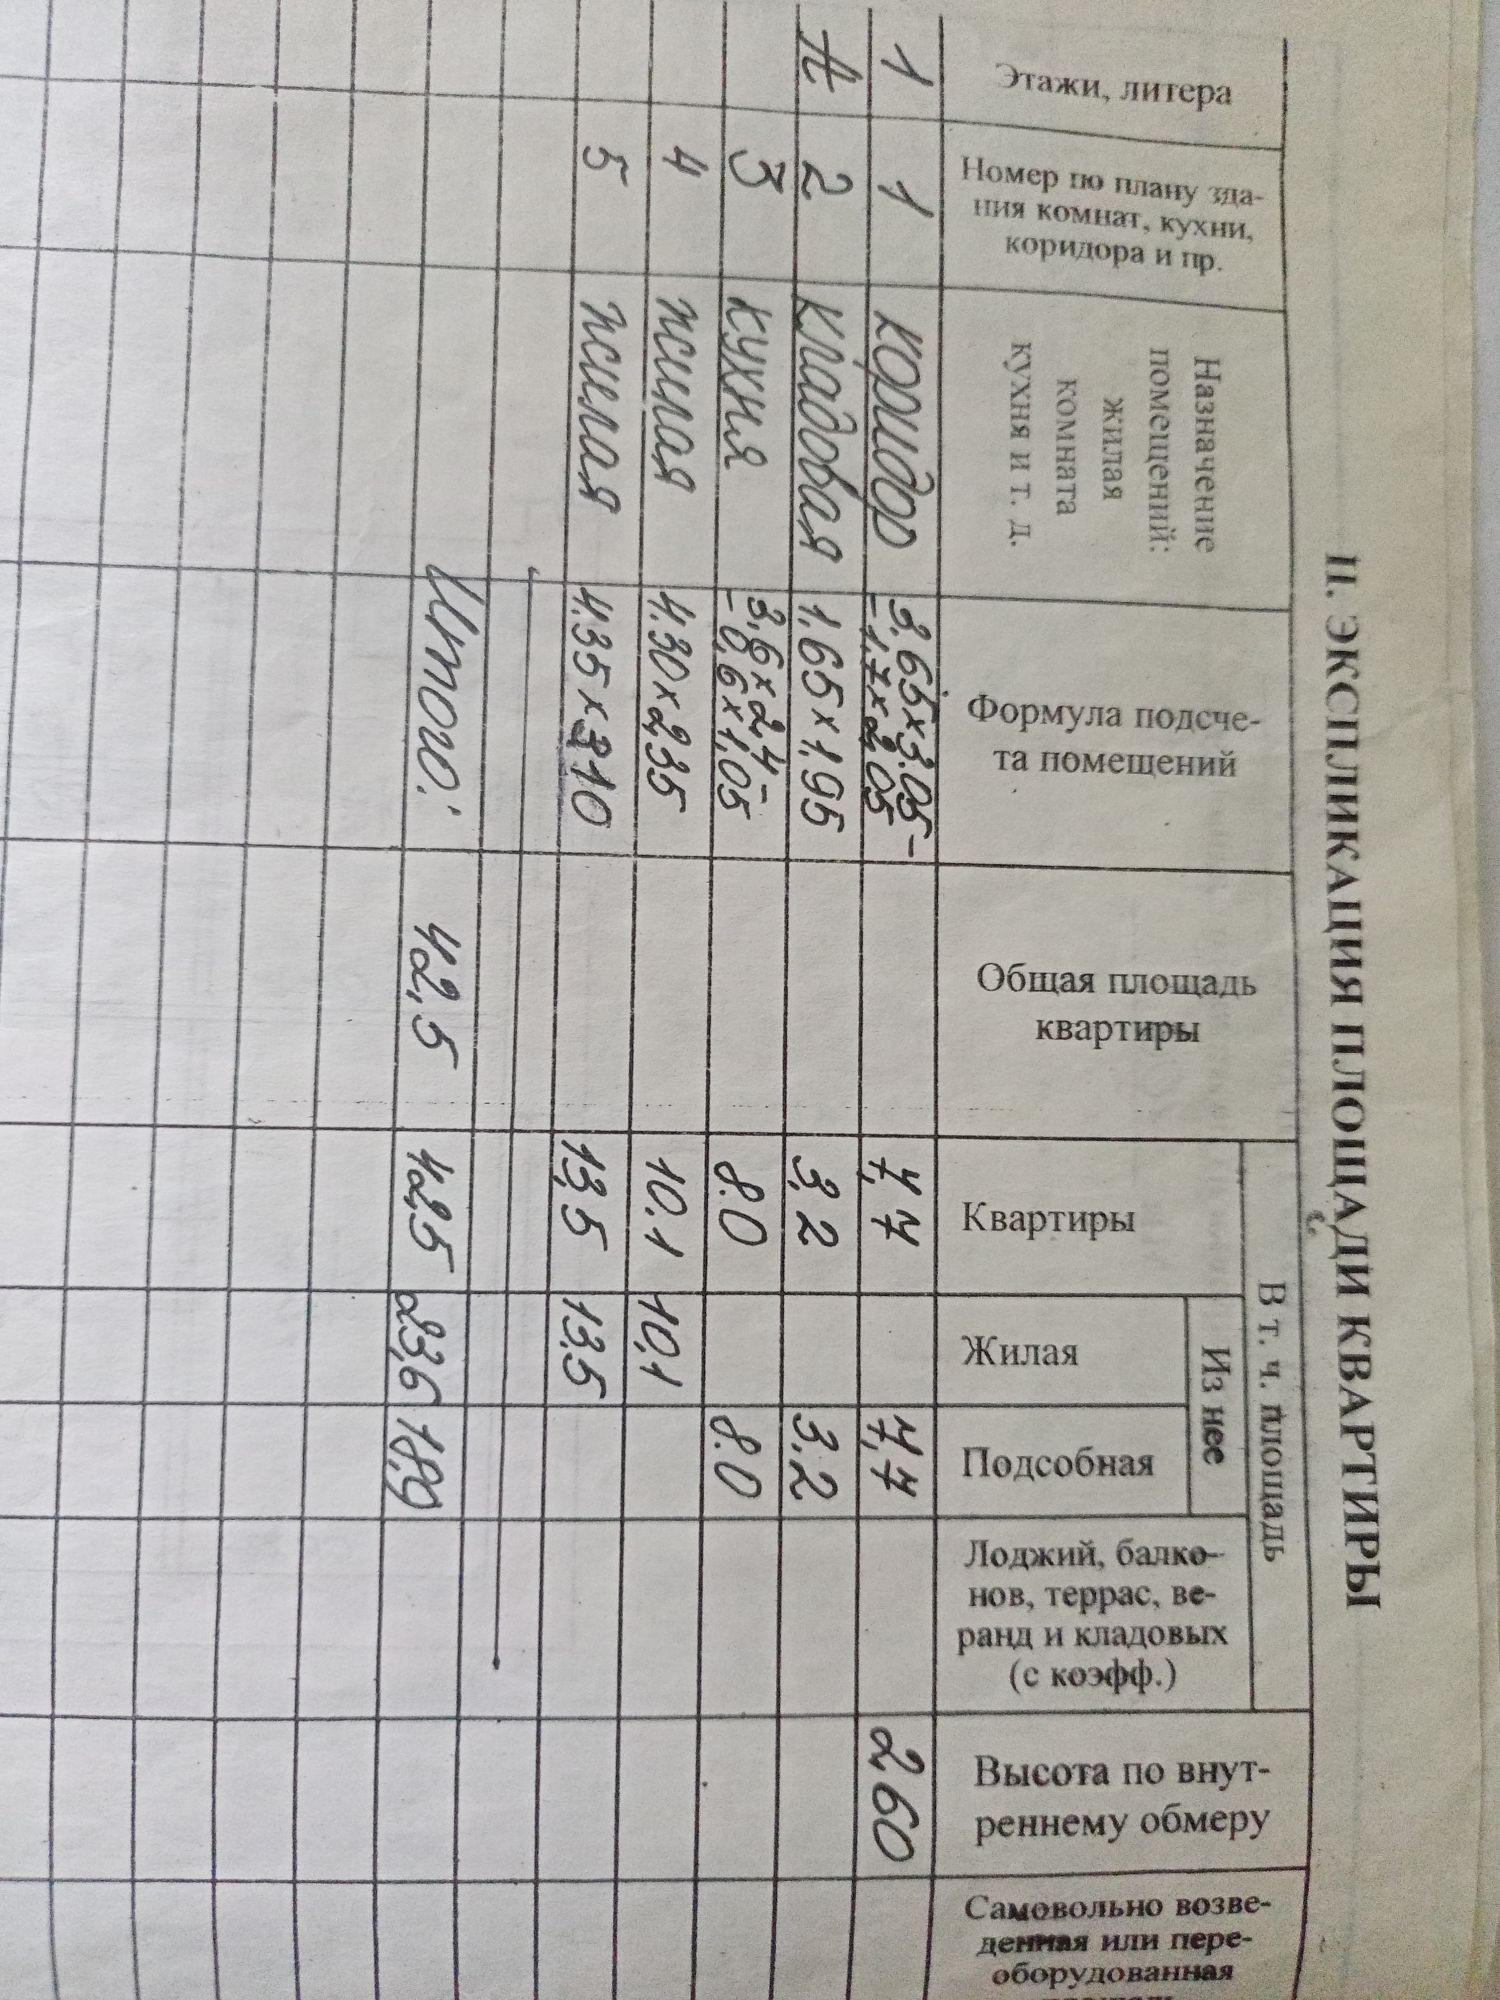 II. ЭКСПЛИКАЦИЯ ПЛОЩАДИ КВАРТИРЫ
Этажи, литера
Номер по плану зда-
ния комнат, кухни,
коридора и пр.
Назначение
помещений:
жилая
комната
кухня и т. д.
Формула подсче-
та помещений
Общая площадь
квартиры
В т. ч. площадь
Квартиры
Из нее
Жилая
Подсобная
Лоджий, балко-
нов, террас, ве-
ранд и кладовых
(с коэфф.)
Высота по внут-
реннему обмеру
Самовольно возве-
денная или пере-
оборудованная
1 1 коридор 3,65х3.05- 7,7 7,7 260
-1,7х2,05
А 2 кладовая 1,65х1,95 3,2 3.2
3 кухня 3,6х2,4- 8.0 8.0
-0,6х1,05
4 жилая 4.30х2,35 10.1 10,1
5 жилая 4.35х310 13,5 13.5
Итого: 42,5 42,5 23,6 18,9